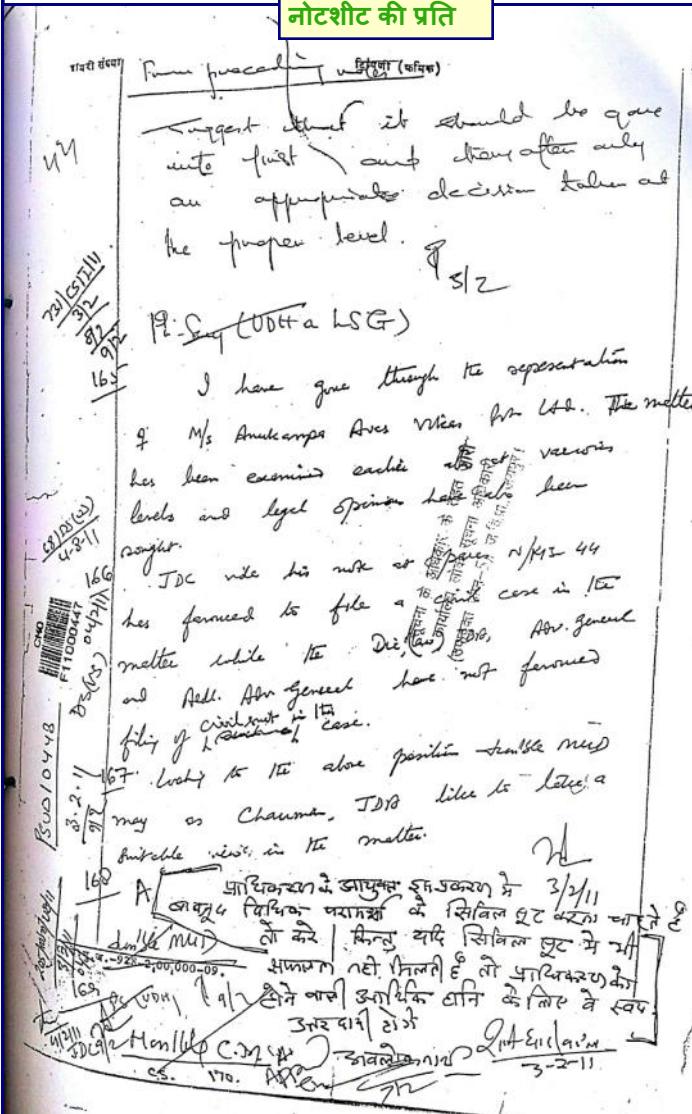 नोटशीट की प्रति
टिप्पणी (क्रमिक)
From preceding
Suggest that it should be gone
into first and thereafter only
an appropriate decision taken at
the proper level.
3/2
(UDH & LSG)
165
I have gone through the representation
of M/s Anukampa Avas Vikas Pvt Ltd. The matter
has been examined earlier at various
levels and legal opinion have also been
sought.
166
JDC vide his note at paras N/143-44
has favoured to file a civil case in the
matter while the Dir, (Law) JDA, Adv. General
and Addl. Adv General have not favoured
filing of civil suit in the case.
167. Looking to the above position Hon'ble MUD
may as Chairman, JDA like to take a
suitable view in the matter.
3/2/11
168
A
प्राधिकरण के आयुक्त इस प्रकरण में
बावजूद विधिक परामर्श के सिविल सूट करना चाहते है
तो करे। किन्तु यदि सिविल सूट में भी
सफलता नही मिलती है तो प्राधिकरण को
होने वाली आर्थिक हानि के लिए वे स्वयं
उत्तरदायी होंगे
Hon'ble MUD
169
Hon'ble C.M.
अवलोकनार्थ
3-2-11
C.S. 170.
7/2
731/CS/I/11
3/2
9/2
4-3-11
CMO
F11000447
3.2.11